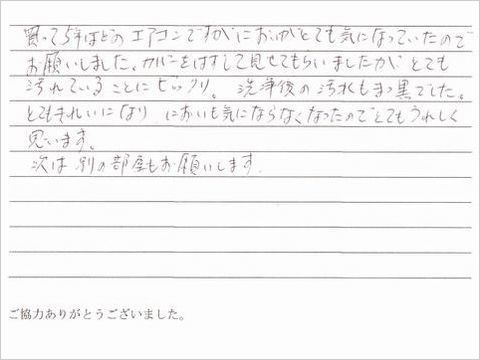 買って5年ほどのエアコンですがにおいがとても気になっていたので
お願いしました。カバーをはずして見せてもらいましたがとても
汚れていることにビックリ。洗浄後の汚水もまっ黒でした。
とてもきれいになりにおいも気にならなくなったのでとてもうれしく
思います。
次は別の部屋もお願いします。
ご協力ありがとうございました。